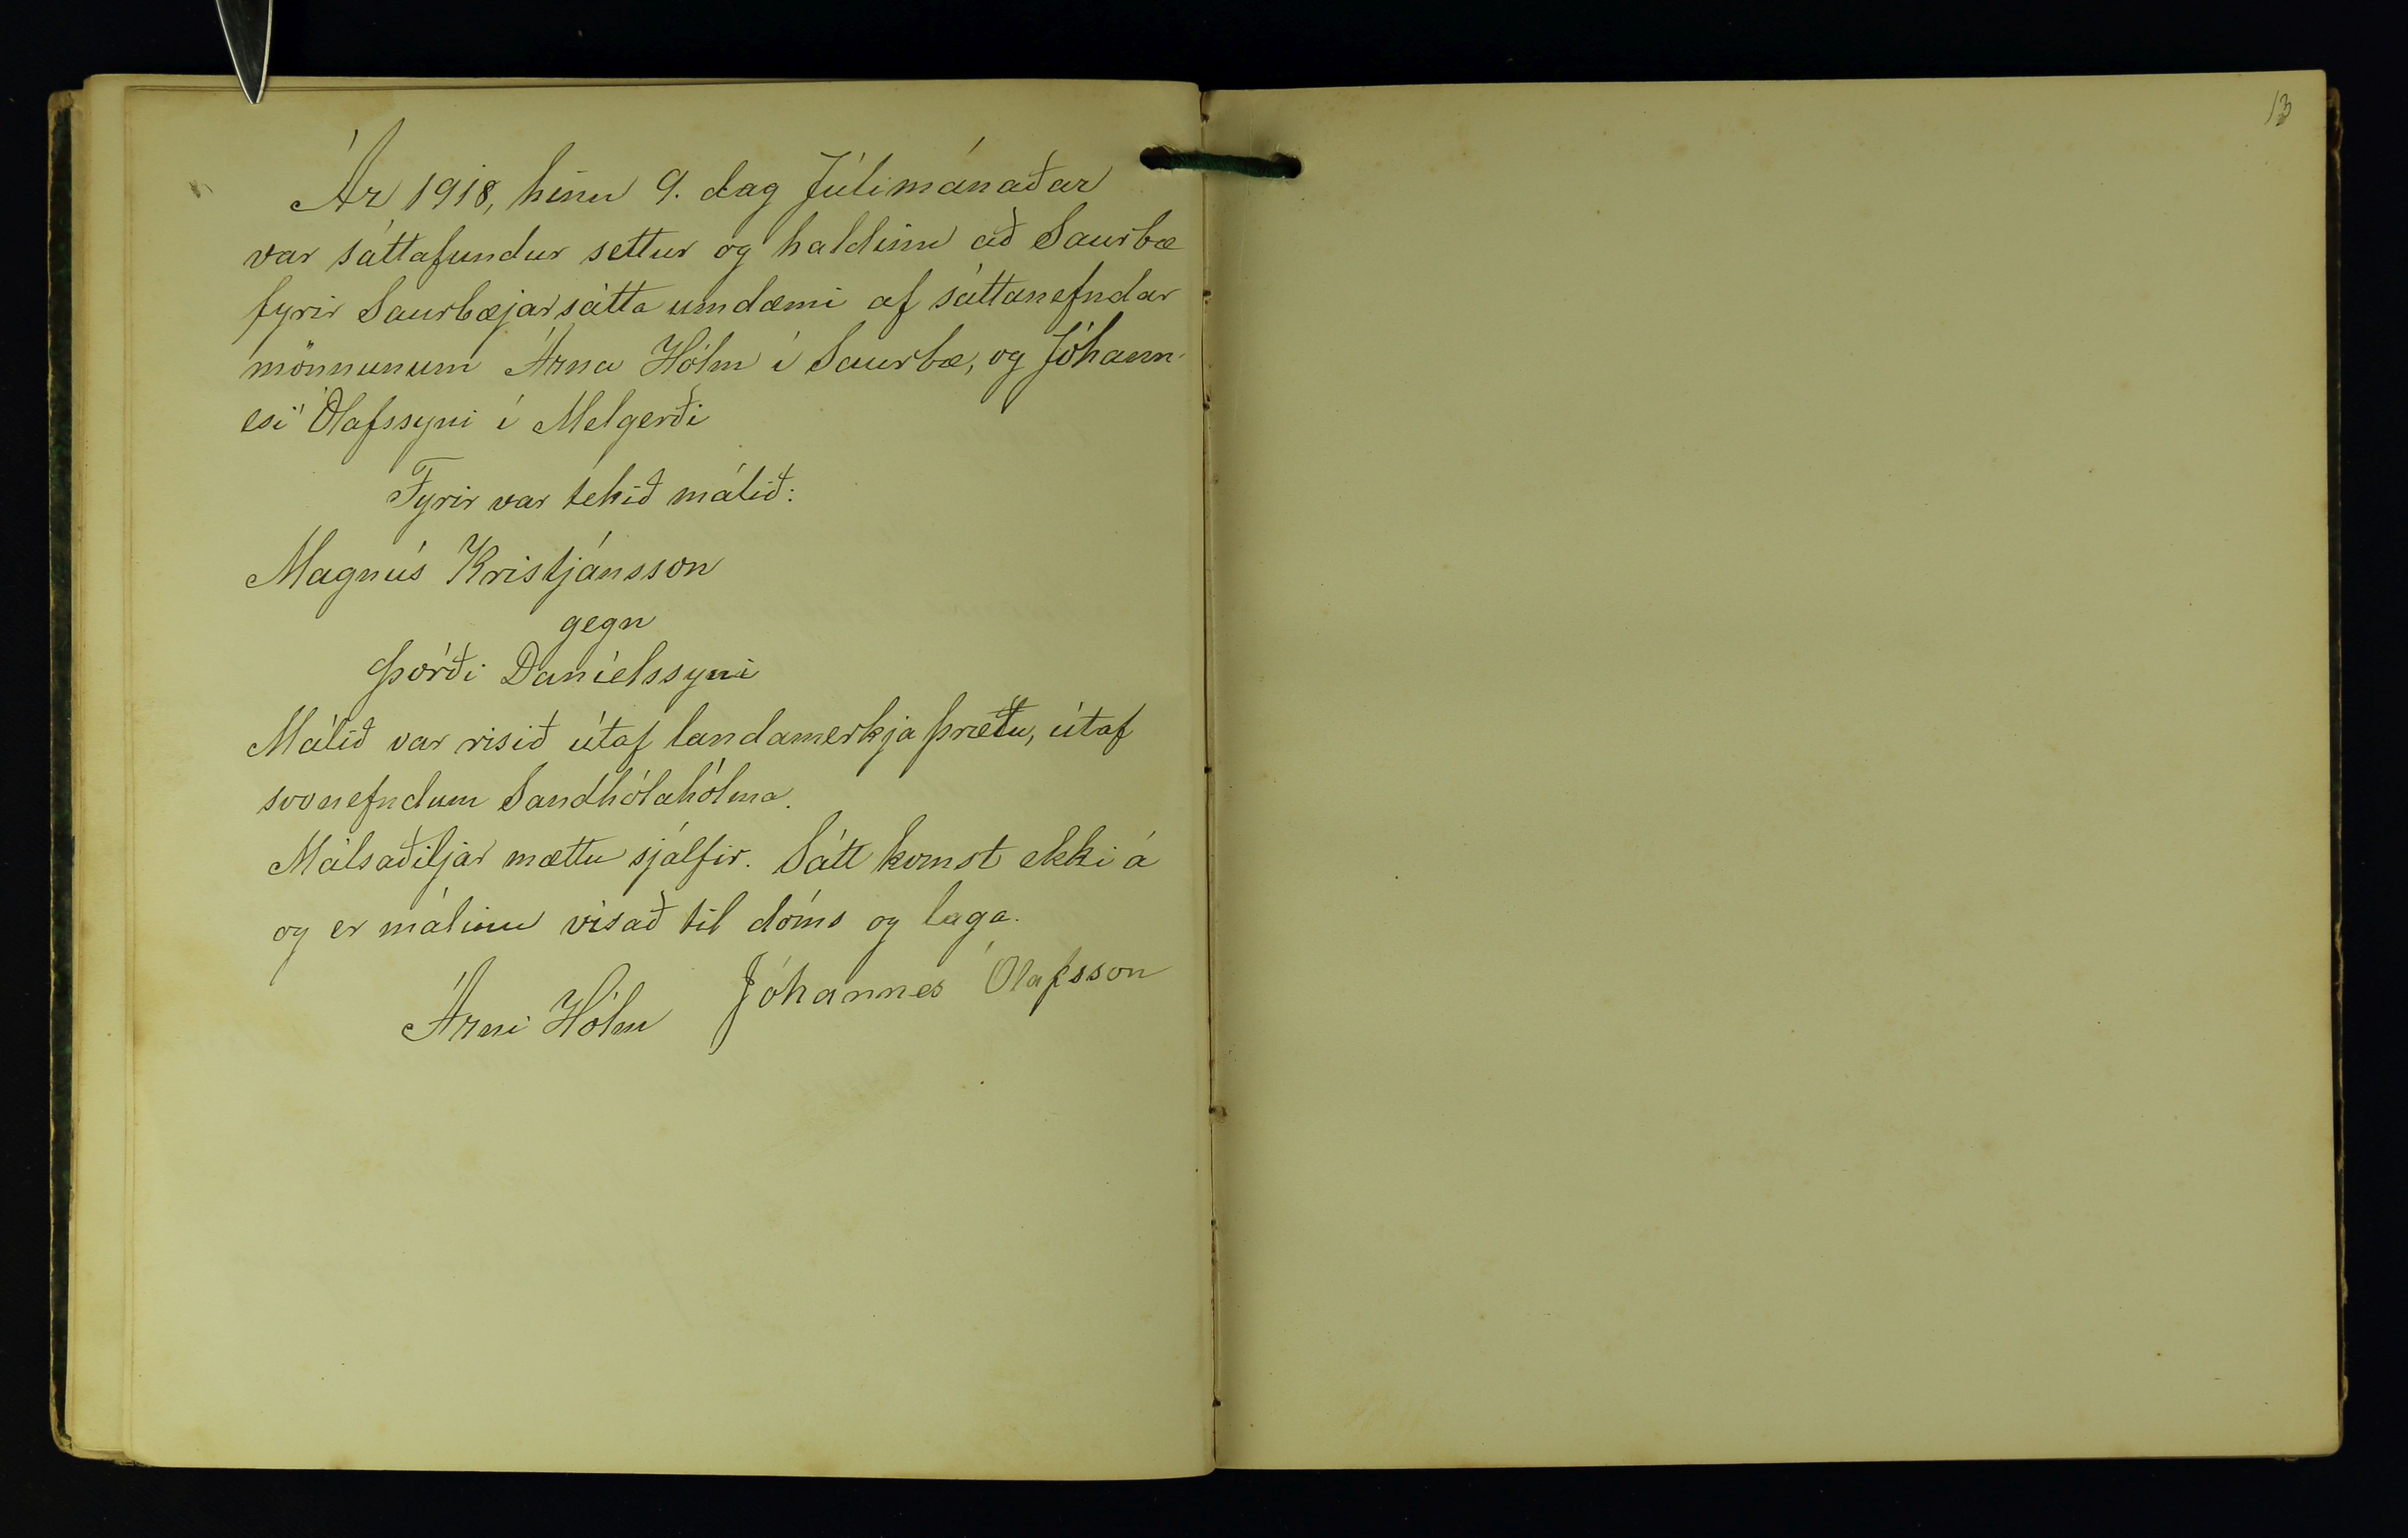 Ár 1918, hinn 9. dag Júlimánaðar
var sáttafundur settur og haldinn að Saurbæ
fyrir Saurbæjarsátta umdæmi af sáttanefndar
mönnunum Árna Hólm í Saurbæ, og Jóhann-
esi Ólafssyni í Melgerði
Fyrir var tekið málið:
Magnús Kristjánsson
gegn
Þórði Daníelssyni
Málið var risið útaf landamerkja þrætu, útaf
svonefndum Sandhólahólma.
Málsaðiljar mættu sjálfir. Sátt komst ekki á
og er málinu vísað til dóms og laga.
Árni Hólm Jóhannes Ólafsson
13